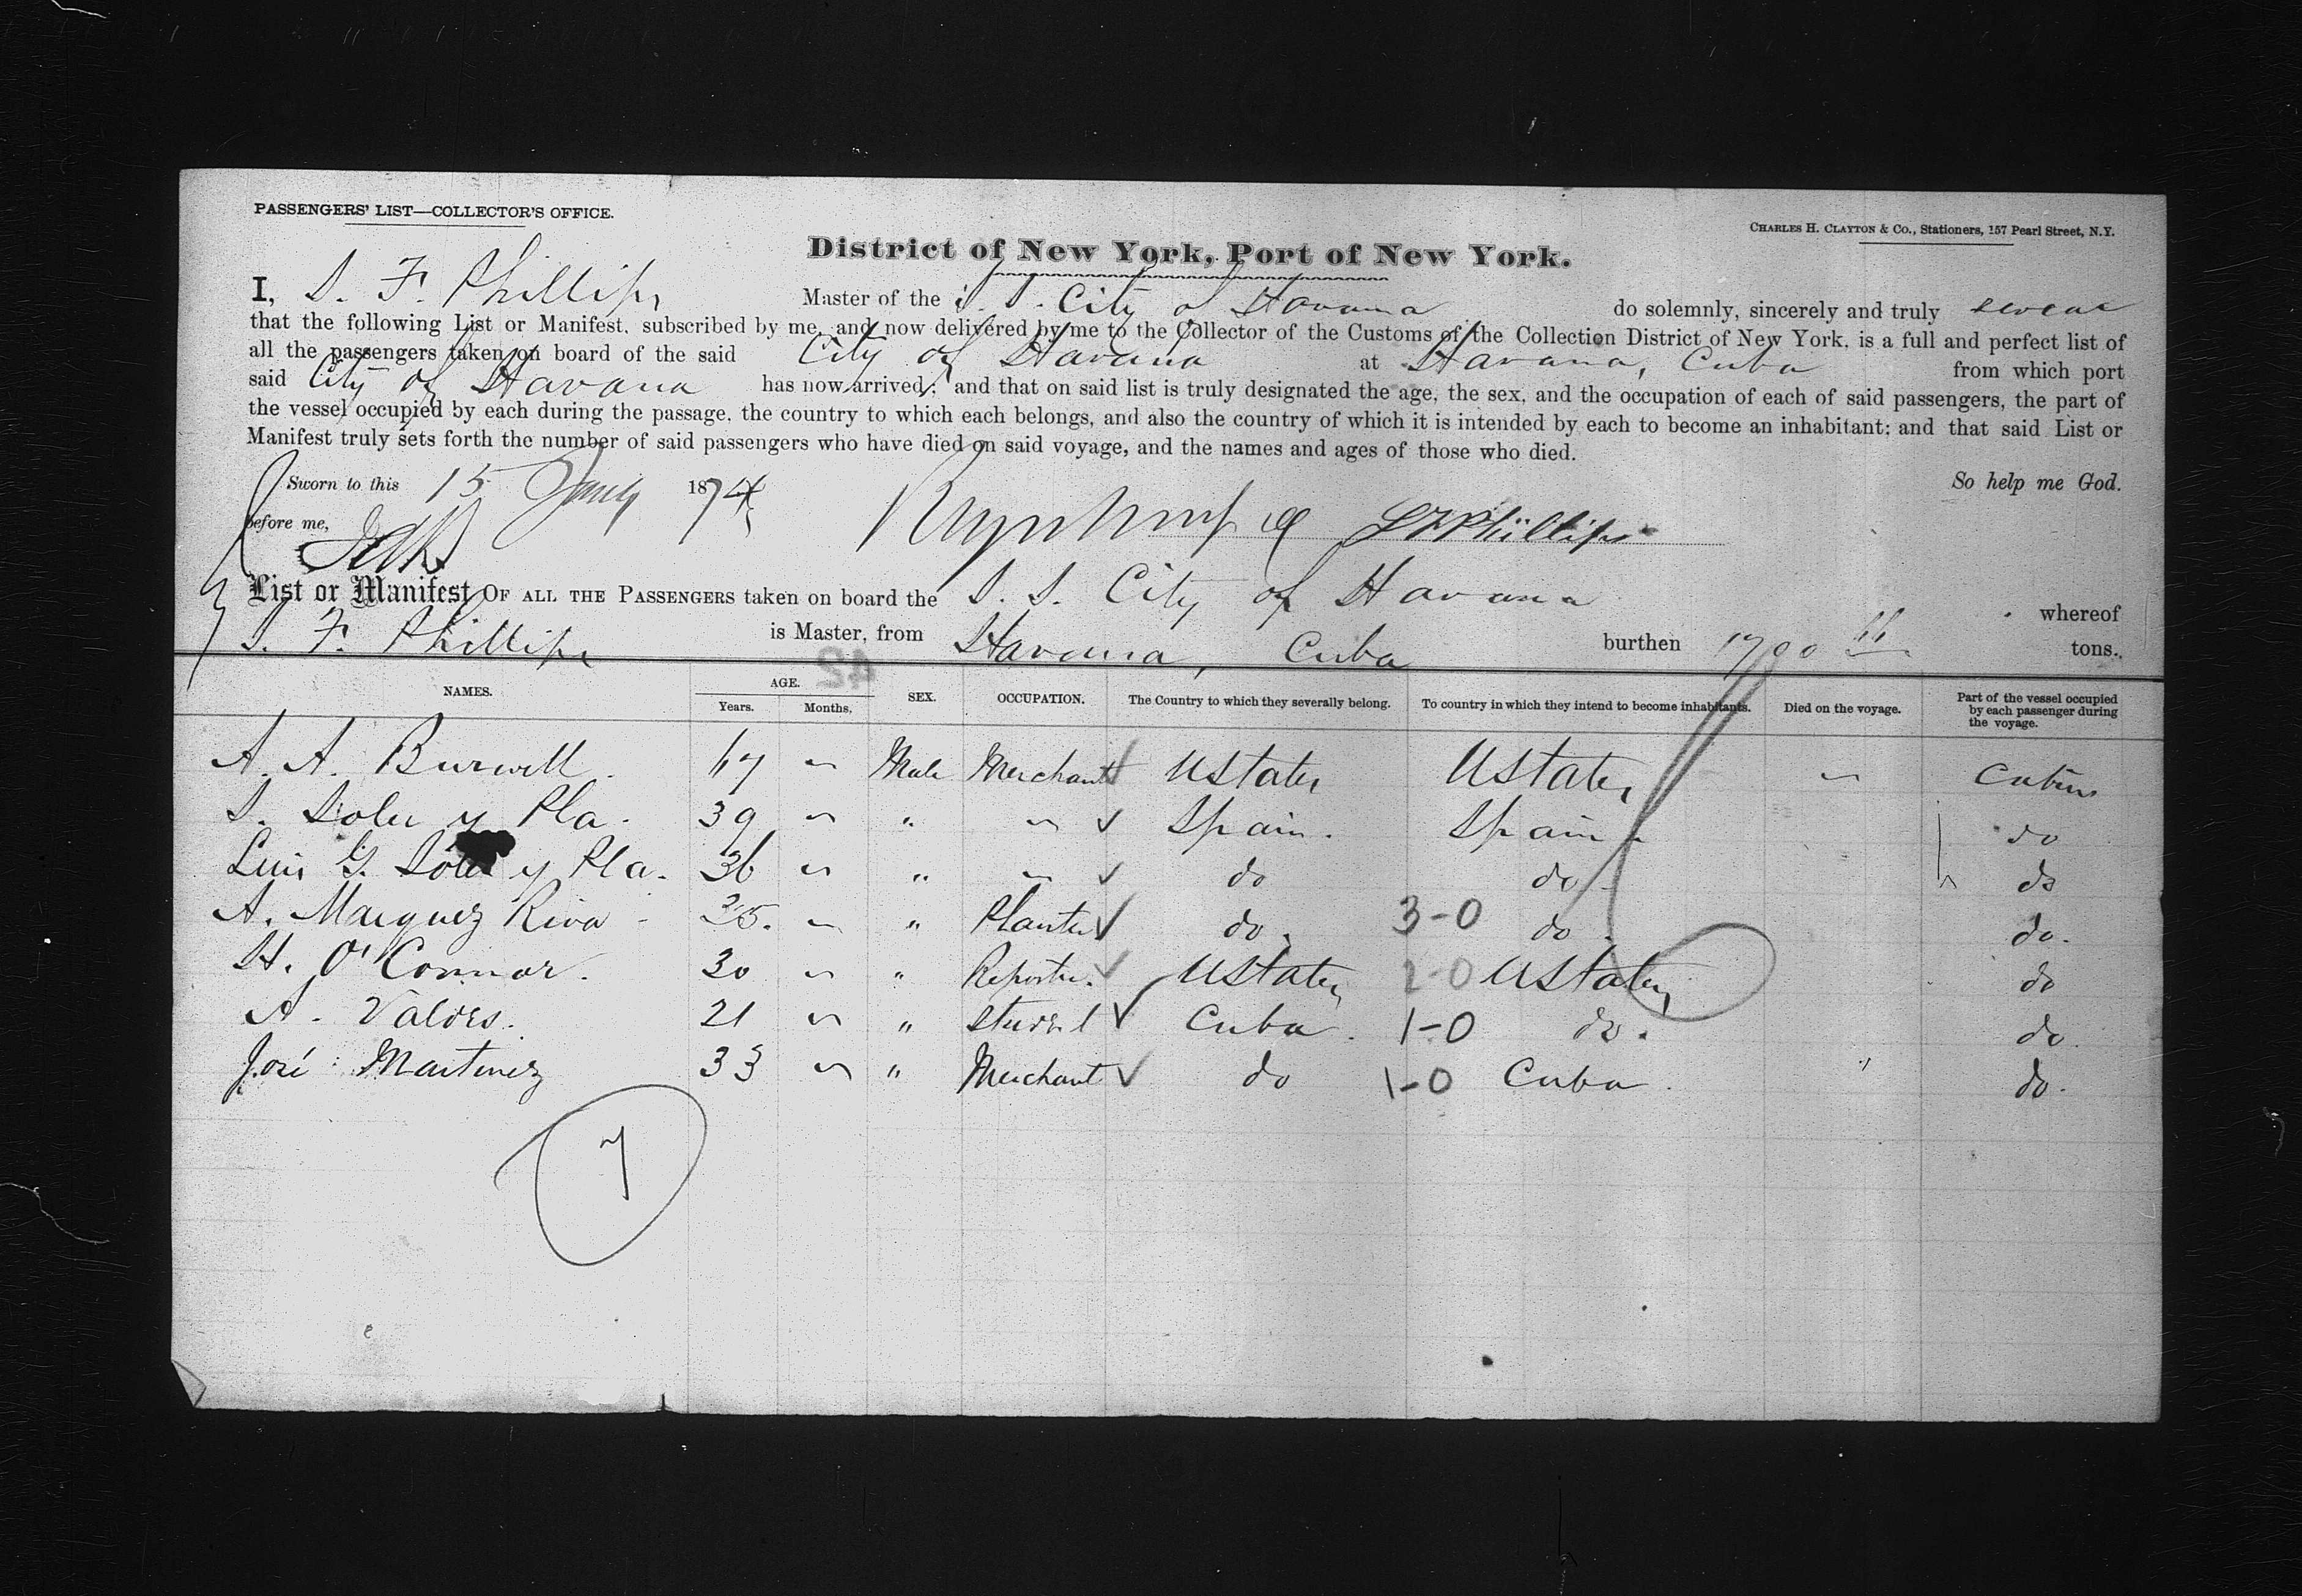 PASSENGERS' LIST—COLLECTOR'S OFFICE.
CHARLES H. CLAYTON & CO., Stationers, 157 Pearl Street, N.Y.
District of New York, Port of New York.
I, S. F. Phillips Master of the S. S. City of Havana do solemnly, sincerely and truly swear
that the following List or Manifest, subscribed by me, and now delivered by me to the Collector of the Customs of the Collection District of New York, is a full and perfect list of
all the passengers taken on board of the said City of Havana at Havana, Cuba from which port
said City of Havana has now arrived; and that on said list is truly designated the age, the sex, and the occupation of each of said passengers, the part of
the vessel occupied by each during the passage, the country to which each belongs, and also the country of which it is intended by each to become an inhabitant; and that said List or
Manifest truly sets forth the number of said passengers who have died on said voyage, and the names and ages of those who died.
Sworn to this 15 1874 So help me God.
before me, S F Phillips
List or Manifest OF ALL THE PASSENGERS taken on board the S. S. City of Havana whereof
S. F. Phillips is Master, from Havana, Cuba burthen 1700 tons.
42
NAMES. AGE. Years. Months. SEX. OCCUPATION. The Country to which they severally belong. To country in which they intend to become inhabitants. Died on the voyage. Part of the vessel occupied by each passenger during the voyage.
A. A. Burwell 67 " Male Merchant UStates UStates " Cabin
S. Soler y Pla. 39 " " " Spain. Spain. do
Luis G. Soler y Pla. 36 " " " do do do
A. Marquez Riva 35. " " Planter do. 3-0 do. do.
H. O'Connor. 30 " " Reporter. UStates 2-0 UStates do
A. Valdes. 21 " " Student Cuba. 1-0 do. do.
José Martinez 33 " " Merchant do 1-0 Cuba. " do.
7